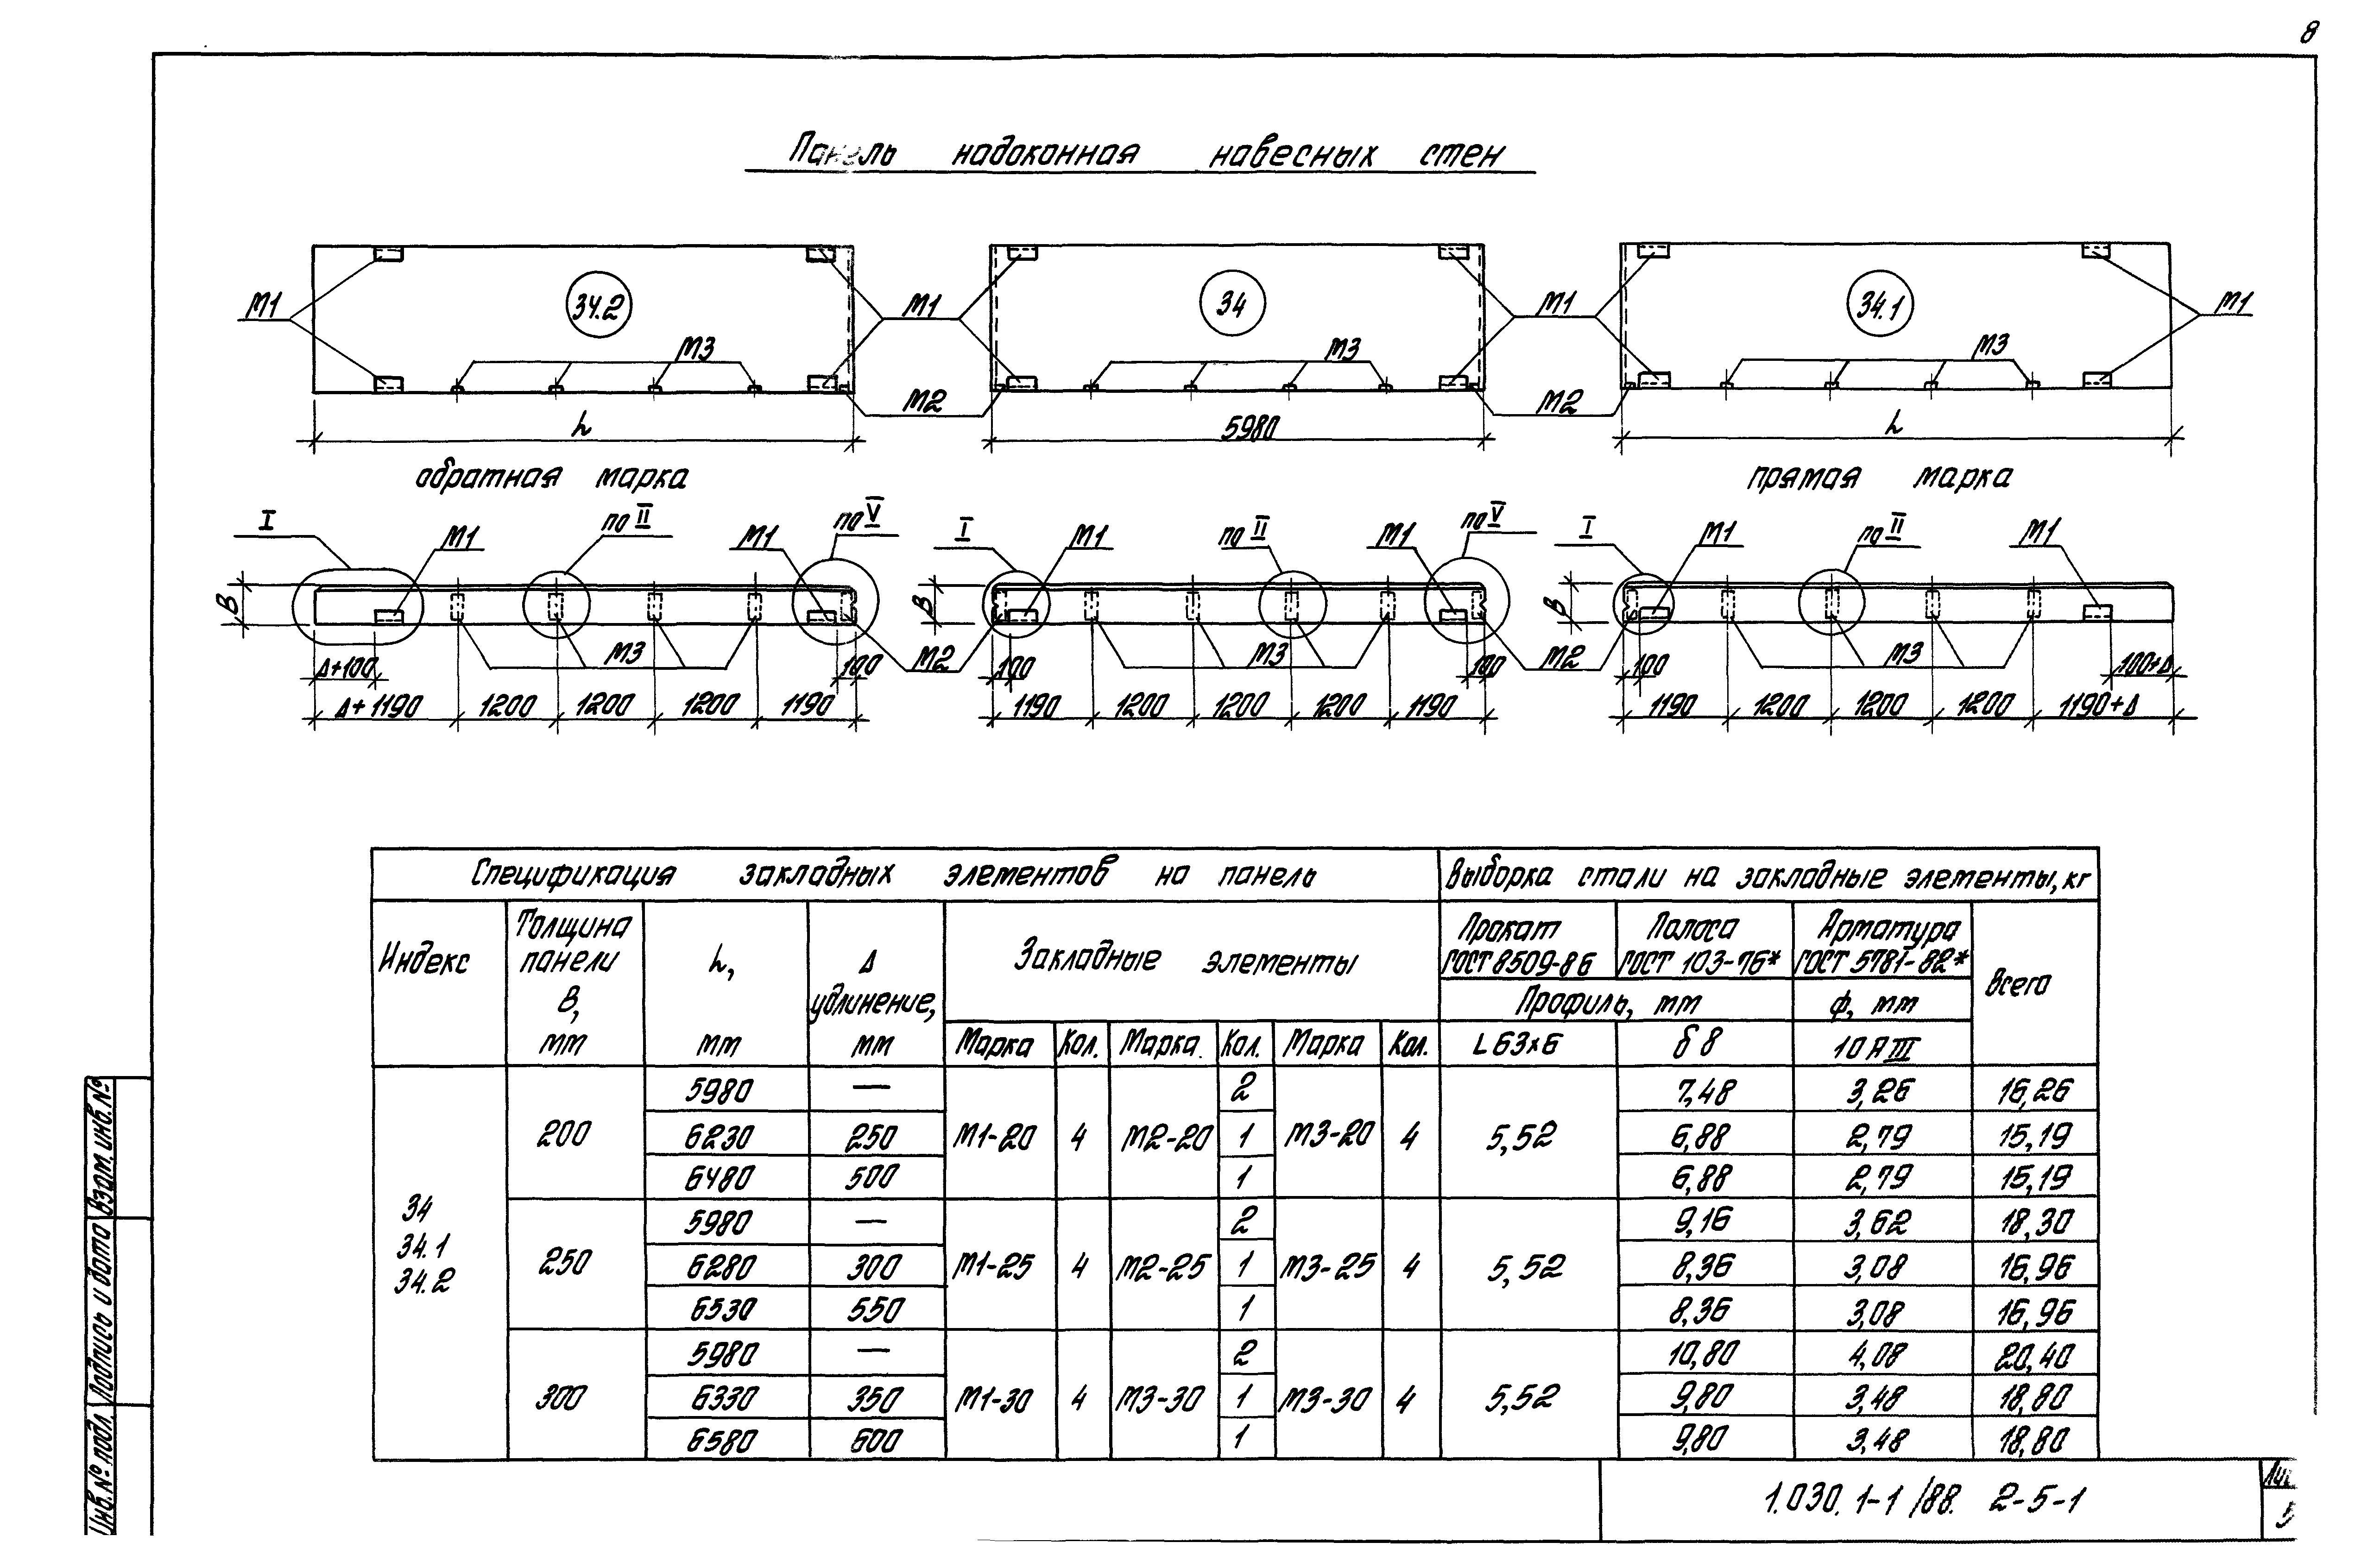 8
Панель надоконная навесных стен
34.2 34 34.1
М1 М1 М1 М1
М3 М3 М3
М2 М2
L 5980 L
обратная марка прямая марка
I М1 по II М1 по V I М1 по II М1 по V I М1 по II М1
В В В
М3 М2 М3 М2 М3
Δ+100 100 100 100 100 100+Δ
Δ+1190 1200 1200 1200 1190 1190 1200 1200 1200 1190 1190 1200 1200 1200 1190+Δ
Спецификация закладных элементов на панель Выборка стали на закладные элементы, кг
Индекс Толщина панели В, мм L, мм Δ удлинение, мм Закладные элементы Прокат ГОСТ 8509-86 Полоса ГОСТ 103-76* Арматура ГОСТ 5781-82* Всего
Профиль, мм ф, мм
Марка Кол. Марка Кол. Марка Кол. L 63х6 δ 8 10 АIII
34
34.1
34.2
200 М1-20 4 М2-20 М3-20 4 5,52
5980 — 2 7,48 3,26 16,26
6230 250 1 6,88 2,79 15,19
6480 500 1 6,88 2,79 15,19
250 М1-25 4 М2-25 М3-25 4 5,52
5980 — 2 9,16 3,62 18,30
6280 300 1 8,36 3,08 16,96
6530 550 1 8,36 3,08 16,96
300 М1-30 4 М3-30 М3-30 4 5,52
5980 — 2 10,80 4,08 20,40
6330 350 1 9,80 3,48 18,80
6580 600 1 9,80 3,48 18,80
Инв.№ подл. Подпись и дата Взам.инв.№
1.030.1-1/88. 2-5-1